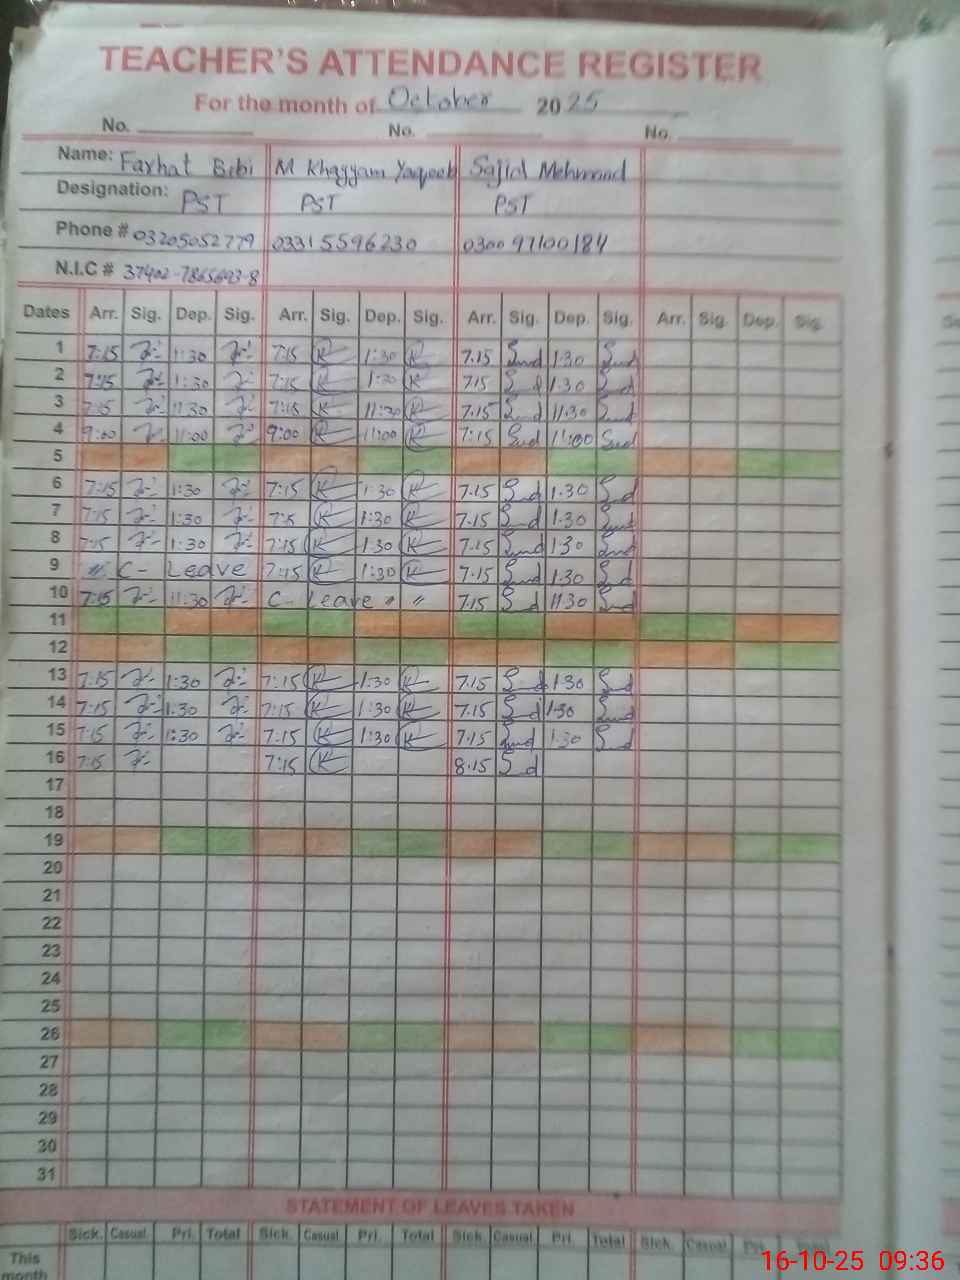 TEACHER'S ATTENDANCE REGISTER
For the month of October 2025
No. No. No.
Name: Farhat Bibi M Khayyam Yaqoob Sajid Mehmood
Designation: PST PST PST
Phone # 03205052779 03315596230 030097100184
N.I.C # 37402-7865693-8
Dates Arr. Sig. Dep. Sig. Arr. Sig. Dep. Sig. Arr. Sig. Dep. Sig. Arr. Sig. Dep. Sig.
1 7:15 1:30 7:15 1:30 7.15 1.30
2 7:15 1:30 7:15 1:30 7.15 1.30
3 7:15 11:30 7:15 11:30 7.15 11.30
4 9:00 11:00 9:00 11:00 7:15 11:00
5
6 7:15 1:30 7:15 1:30 7.15 1.30
7 7:15 1:30 7:15 1:30 7.15 1.30
8 7:15 1:30 7:15 1:30 7.15 1.30
9 C- Leave 7:15 1:30 7.15 1.30
10 7:15 11:30 C- Leave " " 7.15 11.30
11
12
13 7:15 1:30 7:15 1:30 7.15 1.30
14 7:15 1:30 7:15 1:30 7.15 1.30
15 7:15 1:30 7:15 1:30 7.15 1.30
16 7:15 7:15 8.15
17
18
19
20
21
22
23
24
25
26
27
28
29
30
31
STATEMENT OF LEAVES TAKEN
Sick. Casual. Pri. Total Sick. Casual Pri. Total Sick. Casual. Pri. Total Sick. Casual. Pri. Total
This
month
16-10-25 09:36